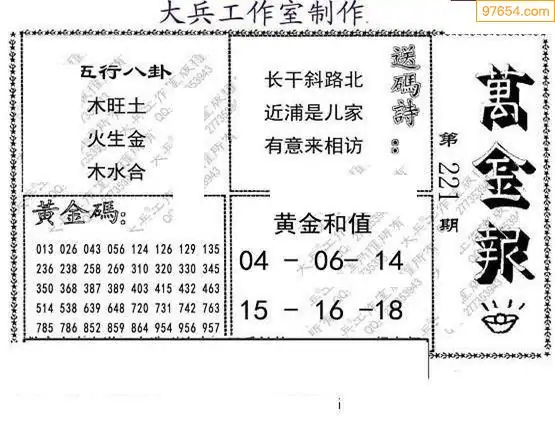 大兵工作室制作
97654.com
萬金報
第221期
五行八卦
木旺土
火生金
木水合
送碼詩:
长干斜路北
近浦是儿家
有意来相访
黃金碼:
013 026 043 056 124 126 129 135
236 238 258 269 310 320 330 345
350 368 387 389 403 415 432 463
514 538 639 648 720 731 742 763
785 786 852 859 864 954 956 957
黄金和值
04 - 06- 14
15 - 16 -18